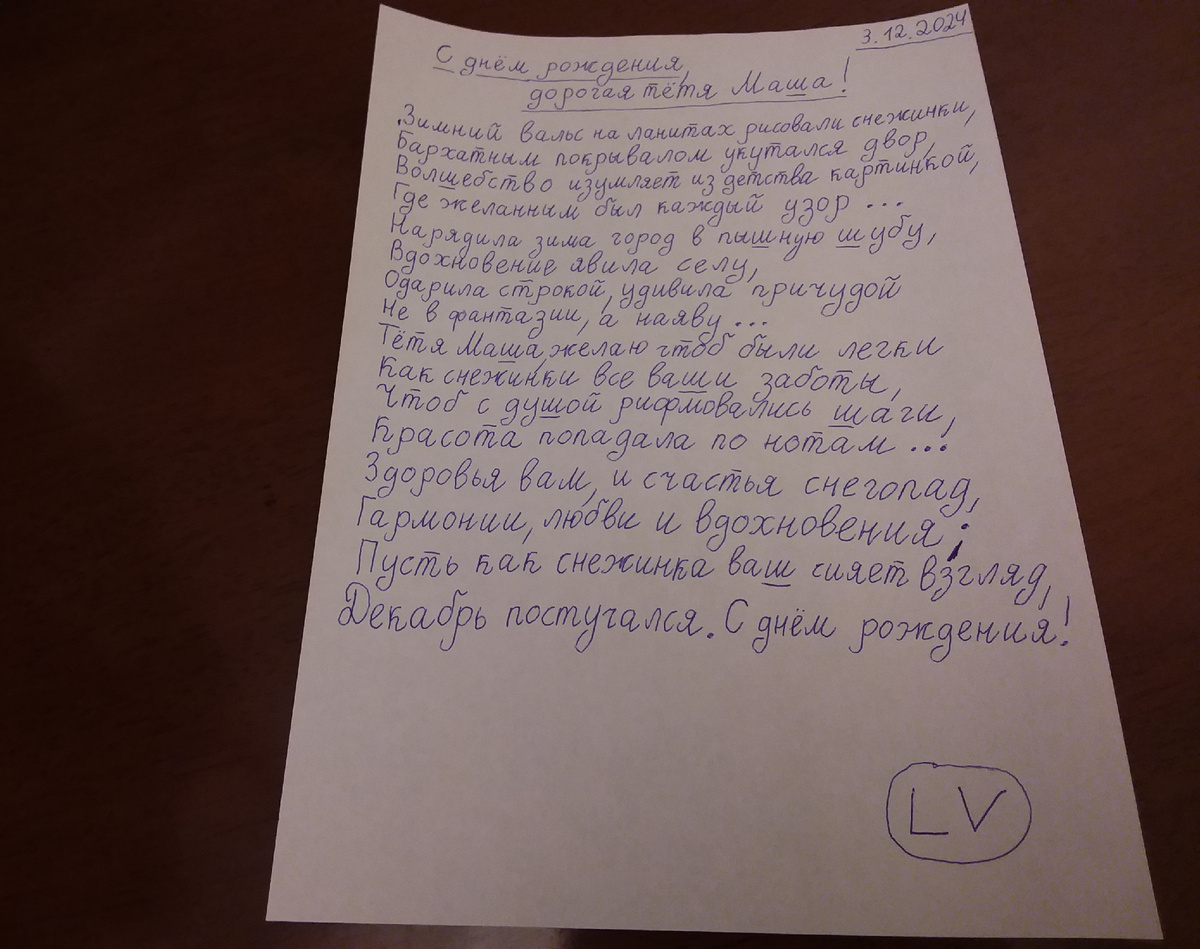 3.12.2024
С днём рождения,
дорогая тётя Маша!
Зимний вальс на ланитах рисовали снежинки,
Бархатным покрывалом укутался двор,
Волшебство изумляет из детства картинкой,
Где желанным был каждый узор ...
Нарядила зима город в пышную шубу,
Вдохновение явила селу,
Одарила строкой, удивила причудой
Не в фантазии, а наяву ...
Тётя Маша, желаю чтоб были легки
Как снежинки все ваши заботы,
Чтоб с душой рифмовались шаги,
Красота попадала по нотам ...
Здоровья вам, и счастья снегопад,
Гармонии, любви и вдохновения;
Пусть как снежинка ваш сияет взгляд,
Декабрь постучался. С днём рождения!
LV